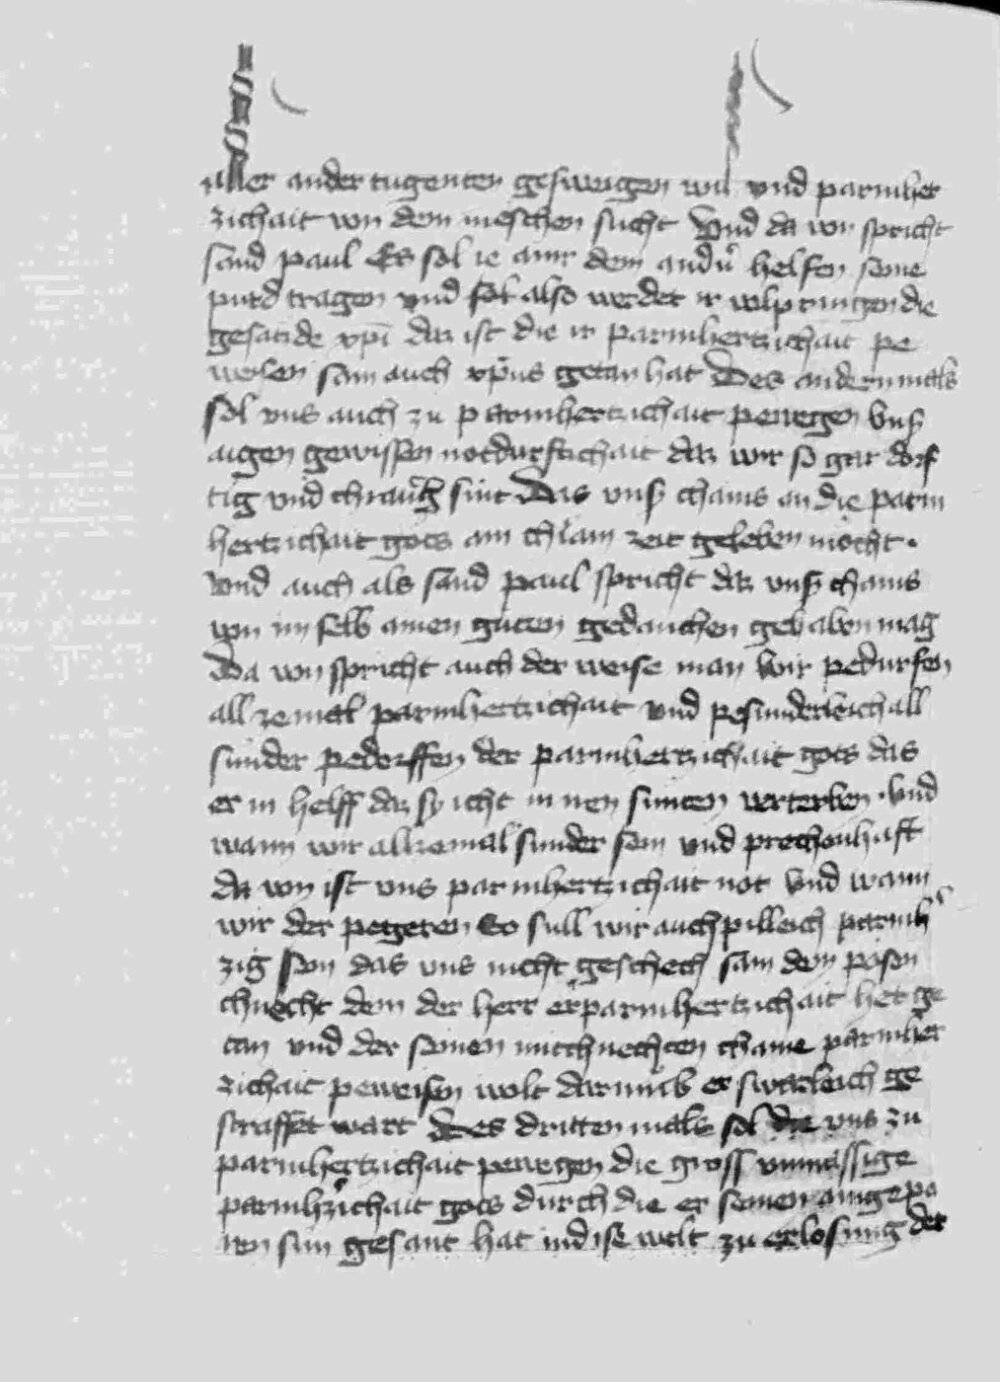 aller ander tugenten gesweigen wil vnd parmher
zichait von dem meschen sucht Vnd da von spricht
sand paul Es sol ie ainr dem andn̄ helfen seine
purd tragen vnd sol also werdet ir volpringen die
gesatzde xp̄i daz ist die ir parmhertzichait pe
weisen sam auch xp̄us getan hat Des andern mals
sol vns auch zu parmhertzichait pewegen vnsʒ
aigen gewissen notdurftichait daz wir so gar dorf
tig vnd chranch sint Das vnsʒ chains an die parm
hertzichait gots ain chlain zeit geleben möcht ·
vnd auch als sand paul spricht daz vnsʒ chains
von im selb ainen guten gedanchen gehaben mag
Da von spricht auch der weise man wir pedurfen
all zemal parmhertzichait vnd pesunderleich all
sunder pedorffen der parmhertzichait gots das
er in helff daz sy icht in iren sunten verterben · Vnd
wann wir allzemal sunder sein vnd prechenhaft
da von ist vns parmhertzichait not Vnd wann
wir der pegeren So sull wir auch pilleich parmh
zig sein das vns nicht geschech sam dem posen
chnecht dem der herr erparmhertzichait het ge
tan vnd der seinen mitchnechten chaine parmher
zichait peweisen wolt darumb er swarleich ge
straffet wart Des dritten mals sol die vns zu
parmhertzichait pewegen die gross vnmassige
parmhʒichait gots durch die er seinen aingepo
ren sun gesant hat in dise welt zu erlosung der